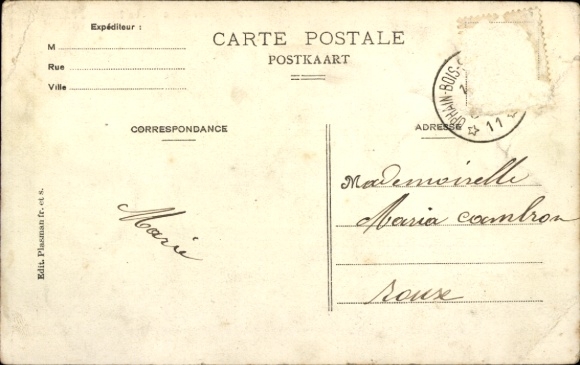 Expéditeur :
M
Rue
Ville
CARTE POSTALE
POSTKAART
OPHAIN-BOIS-S
11
CORRESPONDANCE
ADRESSE
Mademoiselle
Maria Cambron
Marie
Roux
Edit. Plasman fr. et s.